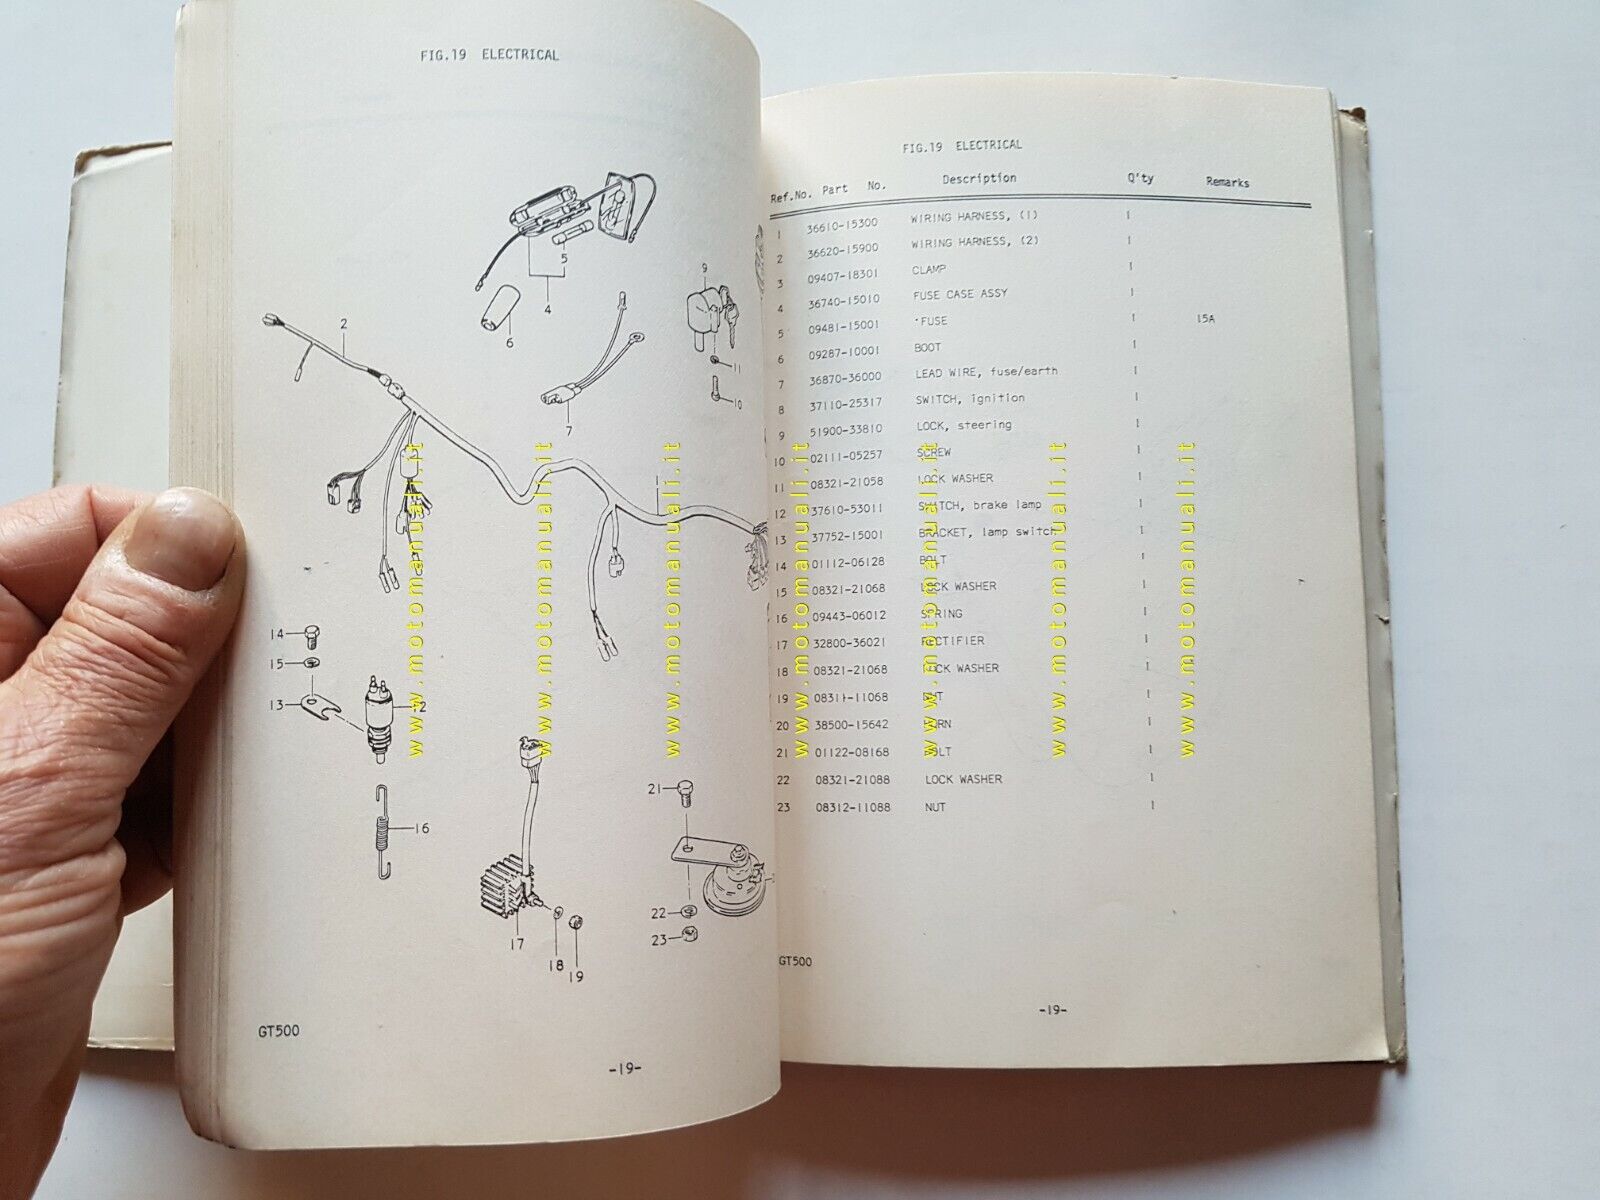 FIG.19 ELECTRICAL
5
4
6
9
11
10
2
7
1
14
15
13
12
16
21
22
23
17
18
19
GT500
-19-
FIG.19 ELECTRICAL
Ref.No. Part No. Description Q'ty Remarks
1 36610-15300 WIRING HARNESS, (1) 1
2 36620-15900 WIRING HARNESS, (2) 1
3 09407-18301 CLAMP 1
4 36740-15010 FUSE CASE ASSY 1
5 09481-15001 ·FUSE 1 15A
6 09287-10001 BOOT 1
7 36870-36000 LEAD WIRE, fuse/earth 1
8 37110-25317 SWITCH, ignition 1
9 51900-33810 LOCK, steering 1
10 02111-05257 SCREW 1
11 08321-21058 LOCK WASHER 1
12 37610-53011 SWITCH, brake lamp 1
13 37752-15001 BRACKET, lamp switch 1
14 01112-06128 BOLT 1
15 08321-21068 LOCK WASHER 1
16 09443-06012 SPRING 1
17 32800-36021 RECTIFIER 1
18 08321-21068 LOCK WASHER 1
19 08311-11068 NUT 1
20 38500-15642 HORN 1
21 01122-08168 BOLT 1
22 08321-21088 LOCK WASHER 1
23 08312-11088 NUT 1
GT500
-19-
www.motomanuali.it
www.motomanuali.it
www.motomanuali.it
www.motomanuali.it
www.motomanuali.it
www.motomanuali.it
www.motomanuali.it